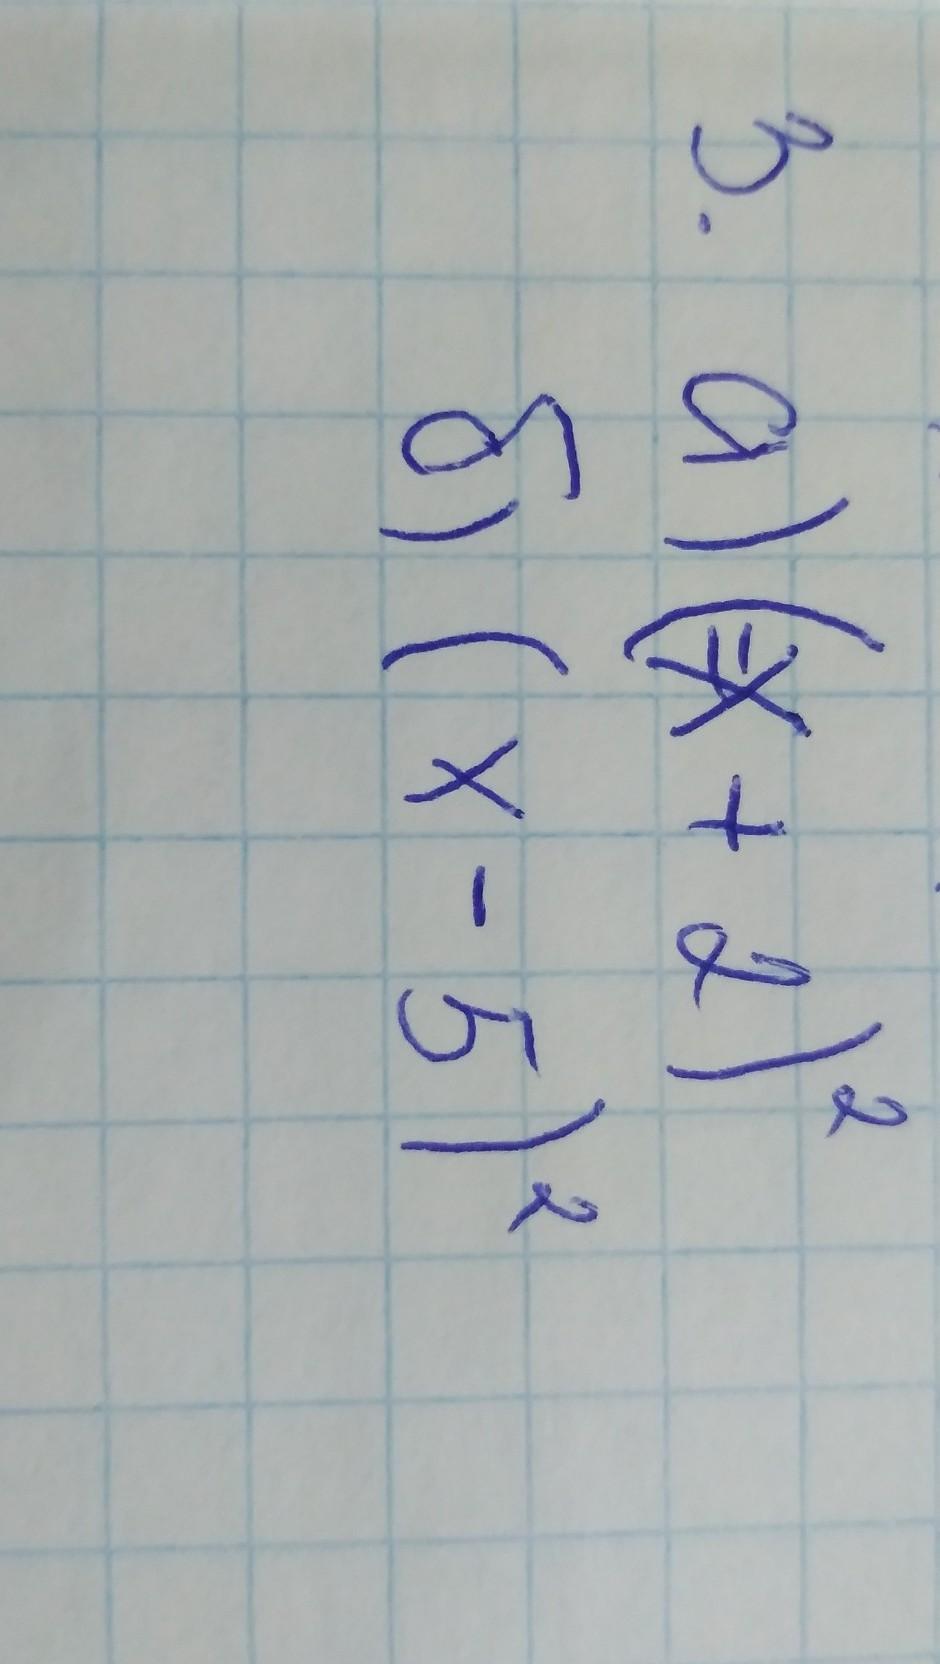 3. а) (x + 2)²
б) (x - 5)²